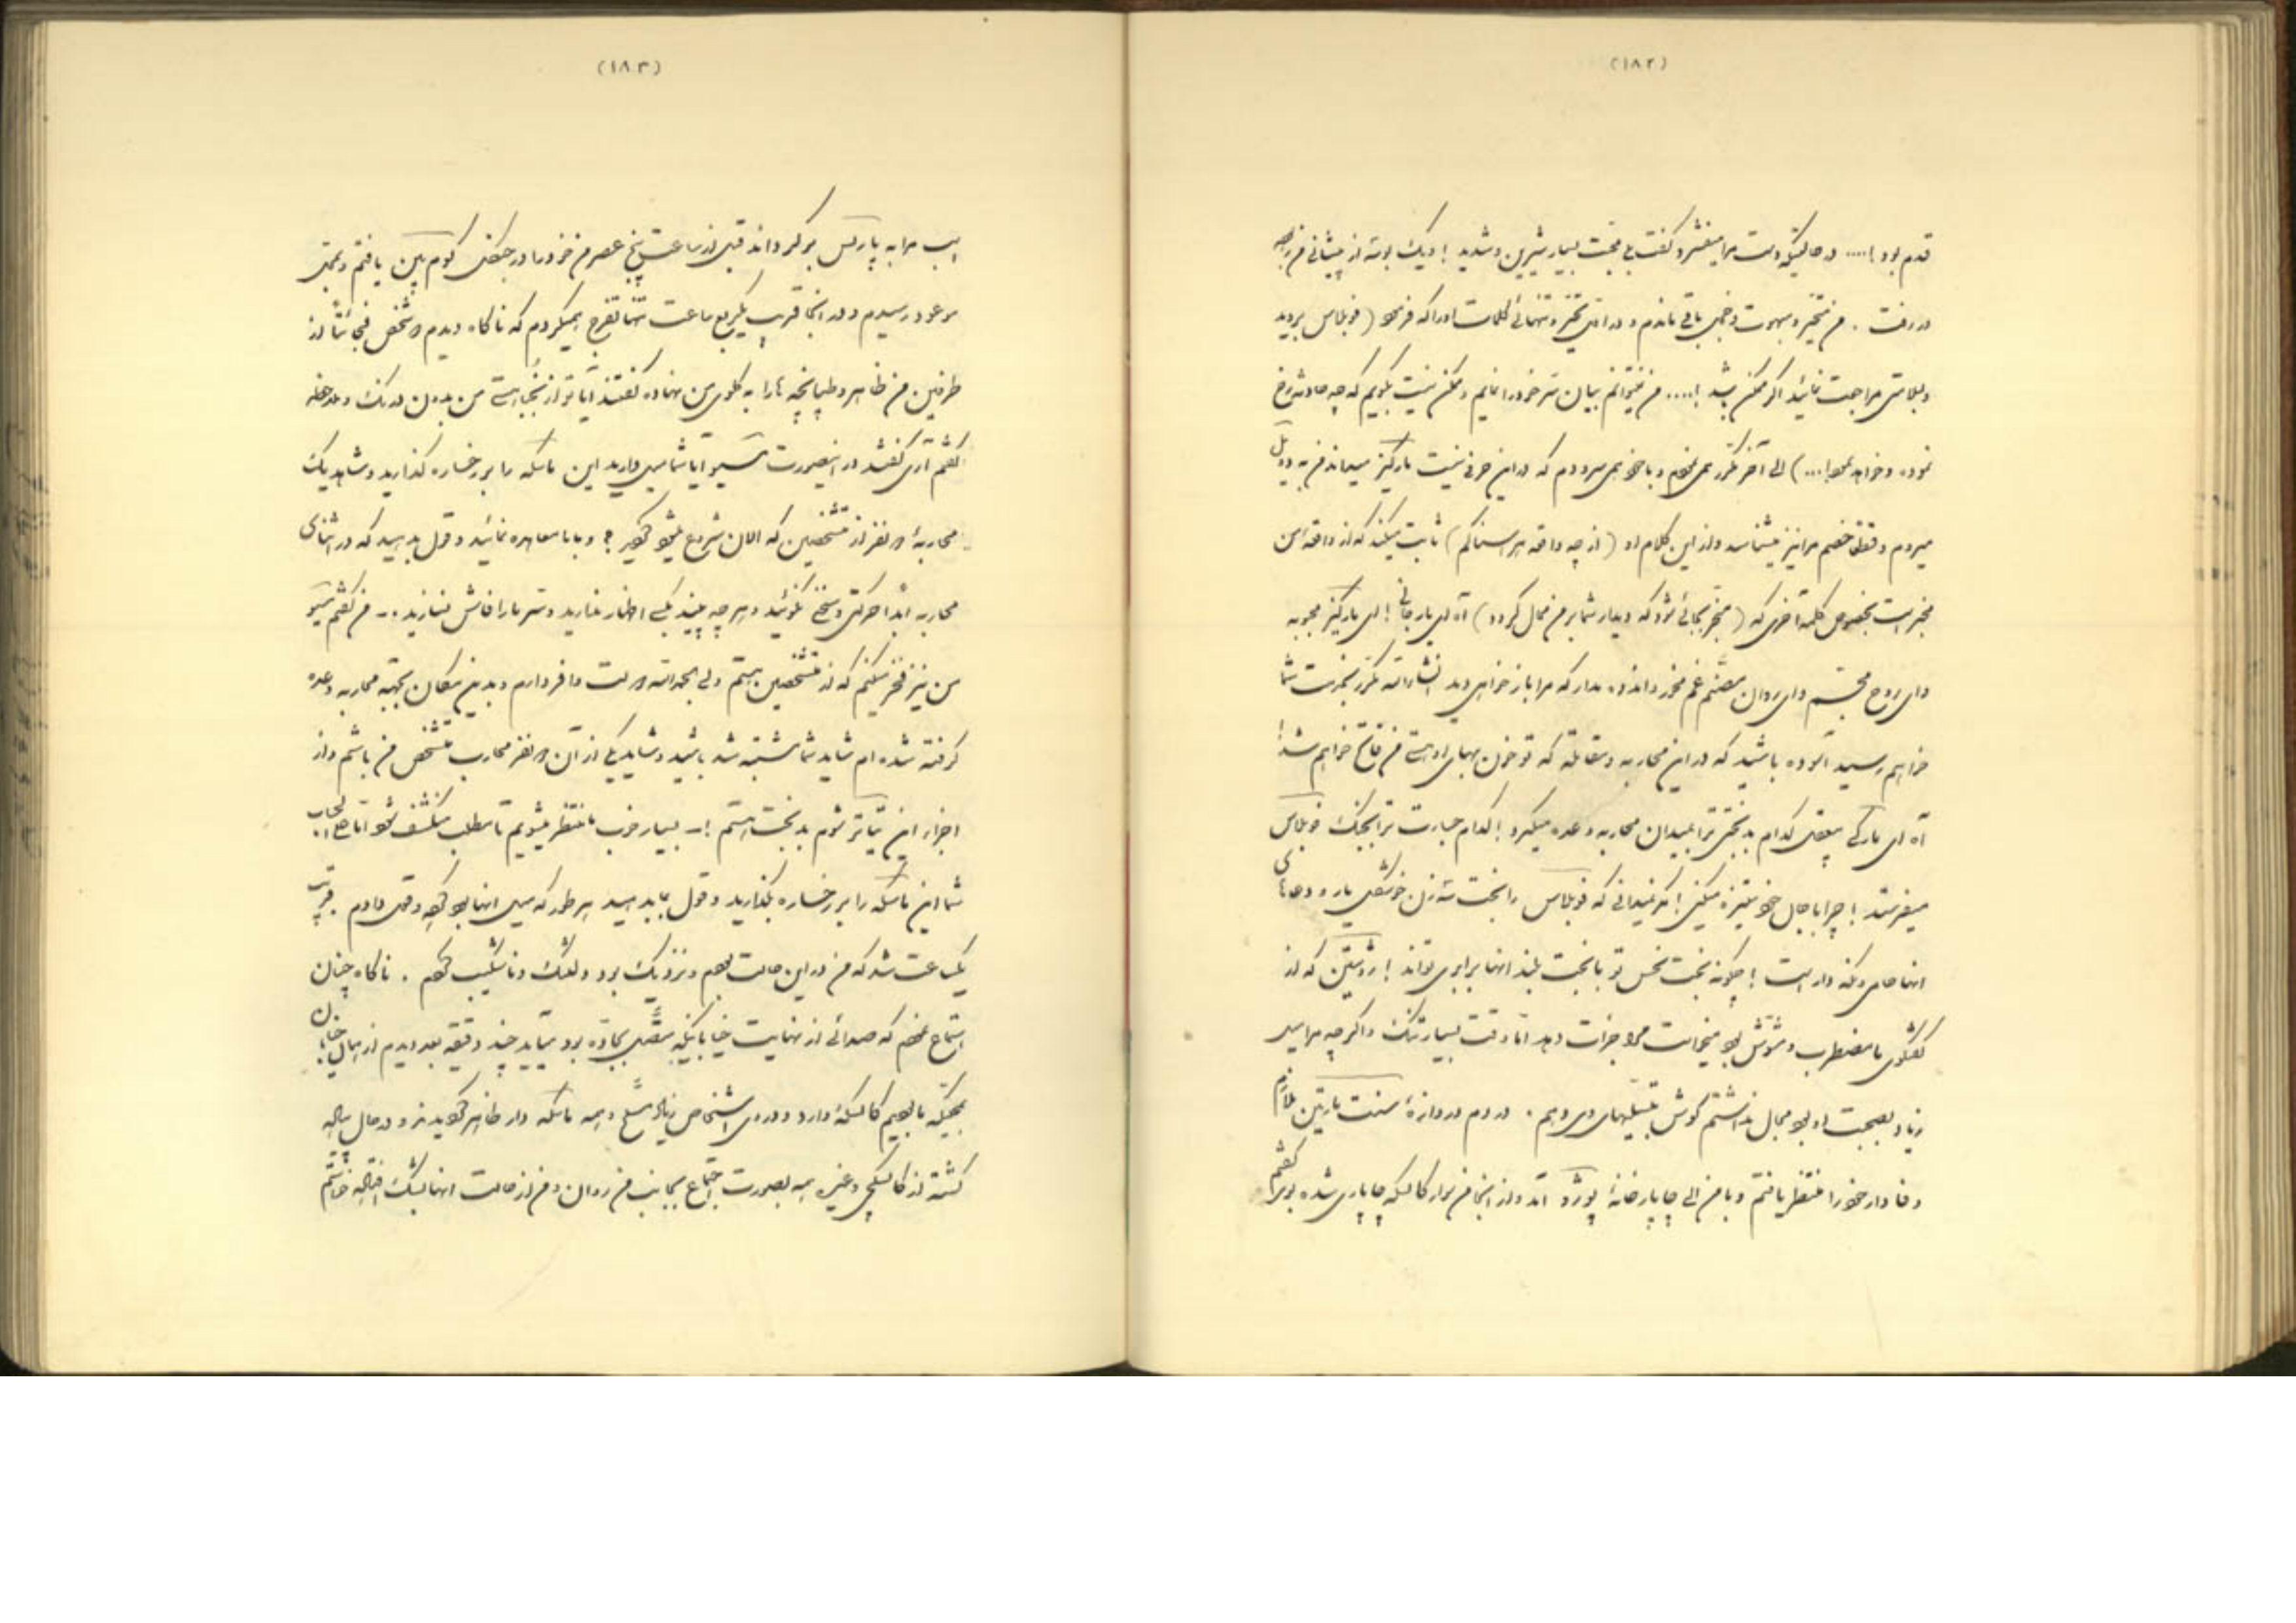 (۱۸۲)
قدم بود !.... در حالتیکه دست مرا میفشرد گفت بی محبت بسیار شیرین و شدید ! و یک بوسه از پیشانی من
در رفت . من متحیر و مبهوت و باقی ماندم و در آن تحیر و تنهائی کلمات او را که (فونبلاس بروید
و بسلامتی مراجعت نمائید اگر ممکن باشد !.... من نمیتوانم بیان سر خود را نمایم و ممکن نیست بگویم که چه حادثه رخ
نموده و خواهد نمود!...) الی آخر مکرر می نمودم و با خود می سرودم که در این حرفی نیست مارکیز میداند من به دوئل
میروم و قطعا خصم مرا نیز میشناسد و از این کلام او (از چه واقعه هراسناکم) ثابت میکند که از واقعه من
مخبر است بخصوص کلمه آخری که (منجر بجائی شود که دیدار شما بر من محال گردد) آه ای یار جانی ! ای مارکیز محبوبه
وای روح مجسم وای روان غم مخور و اندوه مدار که مرا باز خواهی دید انشاءالله مکرر بخدمت شما
خواهم رسید آسوده باشید که در این محاربه و مقاتله که تو خون بهای او هستی من فاتح خواهم شد!
آه ای مارکی کدام بدبختی ترا بمیدان محاربه وعده میگیرد ! کدام جسارت ترا بجنگ فونبلاس
میفرستد ! چرا با جان خود ستیزه میکنی ! مگر نمیدانی که فونبلاس را بخت سه زن خوشگل یار و دعای
آنها حامی و نگهدار است ! چگونه بخت نحس تو با بخت بلند آنها برابری تواند ! ژوستین که از
گفتگوی ما مضطرب و مشوش بود میخواست مرا جرات دهد اما وقت بسیار تنگ و اگر چه مرا میل
زیاد بصحبت او بود مجال نداشتم گوش بتسلیهای وی دهم . در دم دروازه سنت مارتین ملازم
وفادار خود را منتظر یافتم و با من الی چاپارخانه بورژه آمد و از آنجا من سوار کالسکه چاپاری شده بوی گفتم

(۱۸۳)
اسب مرا به پاریس برگرداند قبل از ساعت پنج عصر من خود را در جنگل کومپین یافتم و بمحل
موعود رسیدم و در آنجا قریب یکربع ساعت تنها تفرج میکردم که ناگاه دیدم دو شخص فجأتا از
طرفین من ظاهر و طپانچه ها را به گلوی من نهاده گفتند آیا تو از نجبا هستی من بدون درنگ و ملاحظه
گفتم آری گفتند در اینصورت مسیو آیا شما میل دارید این ماسکه را بر رخساره گذارید و شاهد یک
محاربه دو نفر از متشخصین که الان شروع میشود گردید ؟ و با ما معاهده نمائید و قول بدهید که در اثنای
محاربه ابدا حرکتی و سخنی نگوئید و هر چه بینید بکسی اظهار ندارید و سر ما را فاش نسازید .- من گفتم مسیو
من نیز فخر میکنم که از متشخصین هستم ولی بحمدالله دو دست وافر دارم و بدین مکان بجهت محاربه وعده
گرفته شده ام شاید شما مشتبه شده باشید و شاید یکی از آن دو نفر محارب متشخص من باشم و از
اجزاء این تیاتر شوم بدبخت هستم !- بسیار خوب ما منتظر میشویم تا مطلب منکشف شود اما
شما این ماسکه را بر رخساره بگذارید و قول بدهید هر طور که میل آنها بود قولی دادم . قریب
یکساعت شد که من در این حالت بودم و نزدیک بود دلتنگ و ناشکیب گردم . ناگاه چنان
استماع نمودم که صدائی از نهایت خیابانیکه متصل بجاده بود میآید چند دقیقه بعد دیدم از میان خیابان
بجائیکه ما بودیم کالسکه وارد و دور وی اشخاص زیاد مسلح و همه ماسکه دار ظاهر گردیدند و در حال پیاده
گشته از کالسکچی و غیره همه بصورت اجتماع بجانب من روان و من از حالت آنها بشک افتاده خواستم